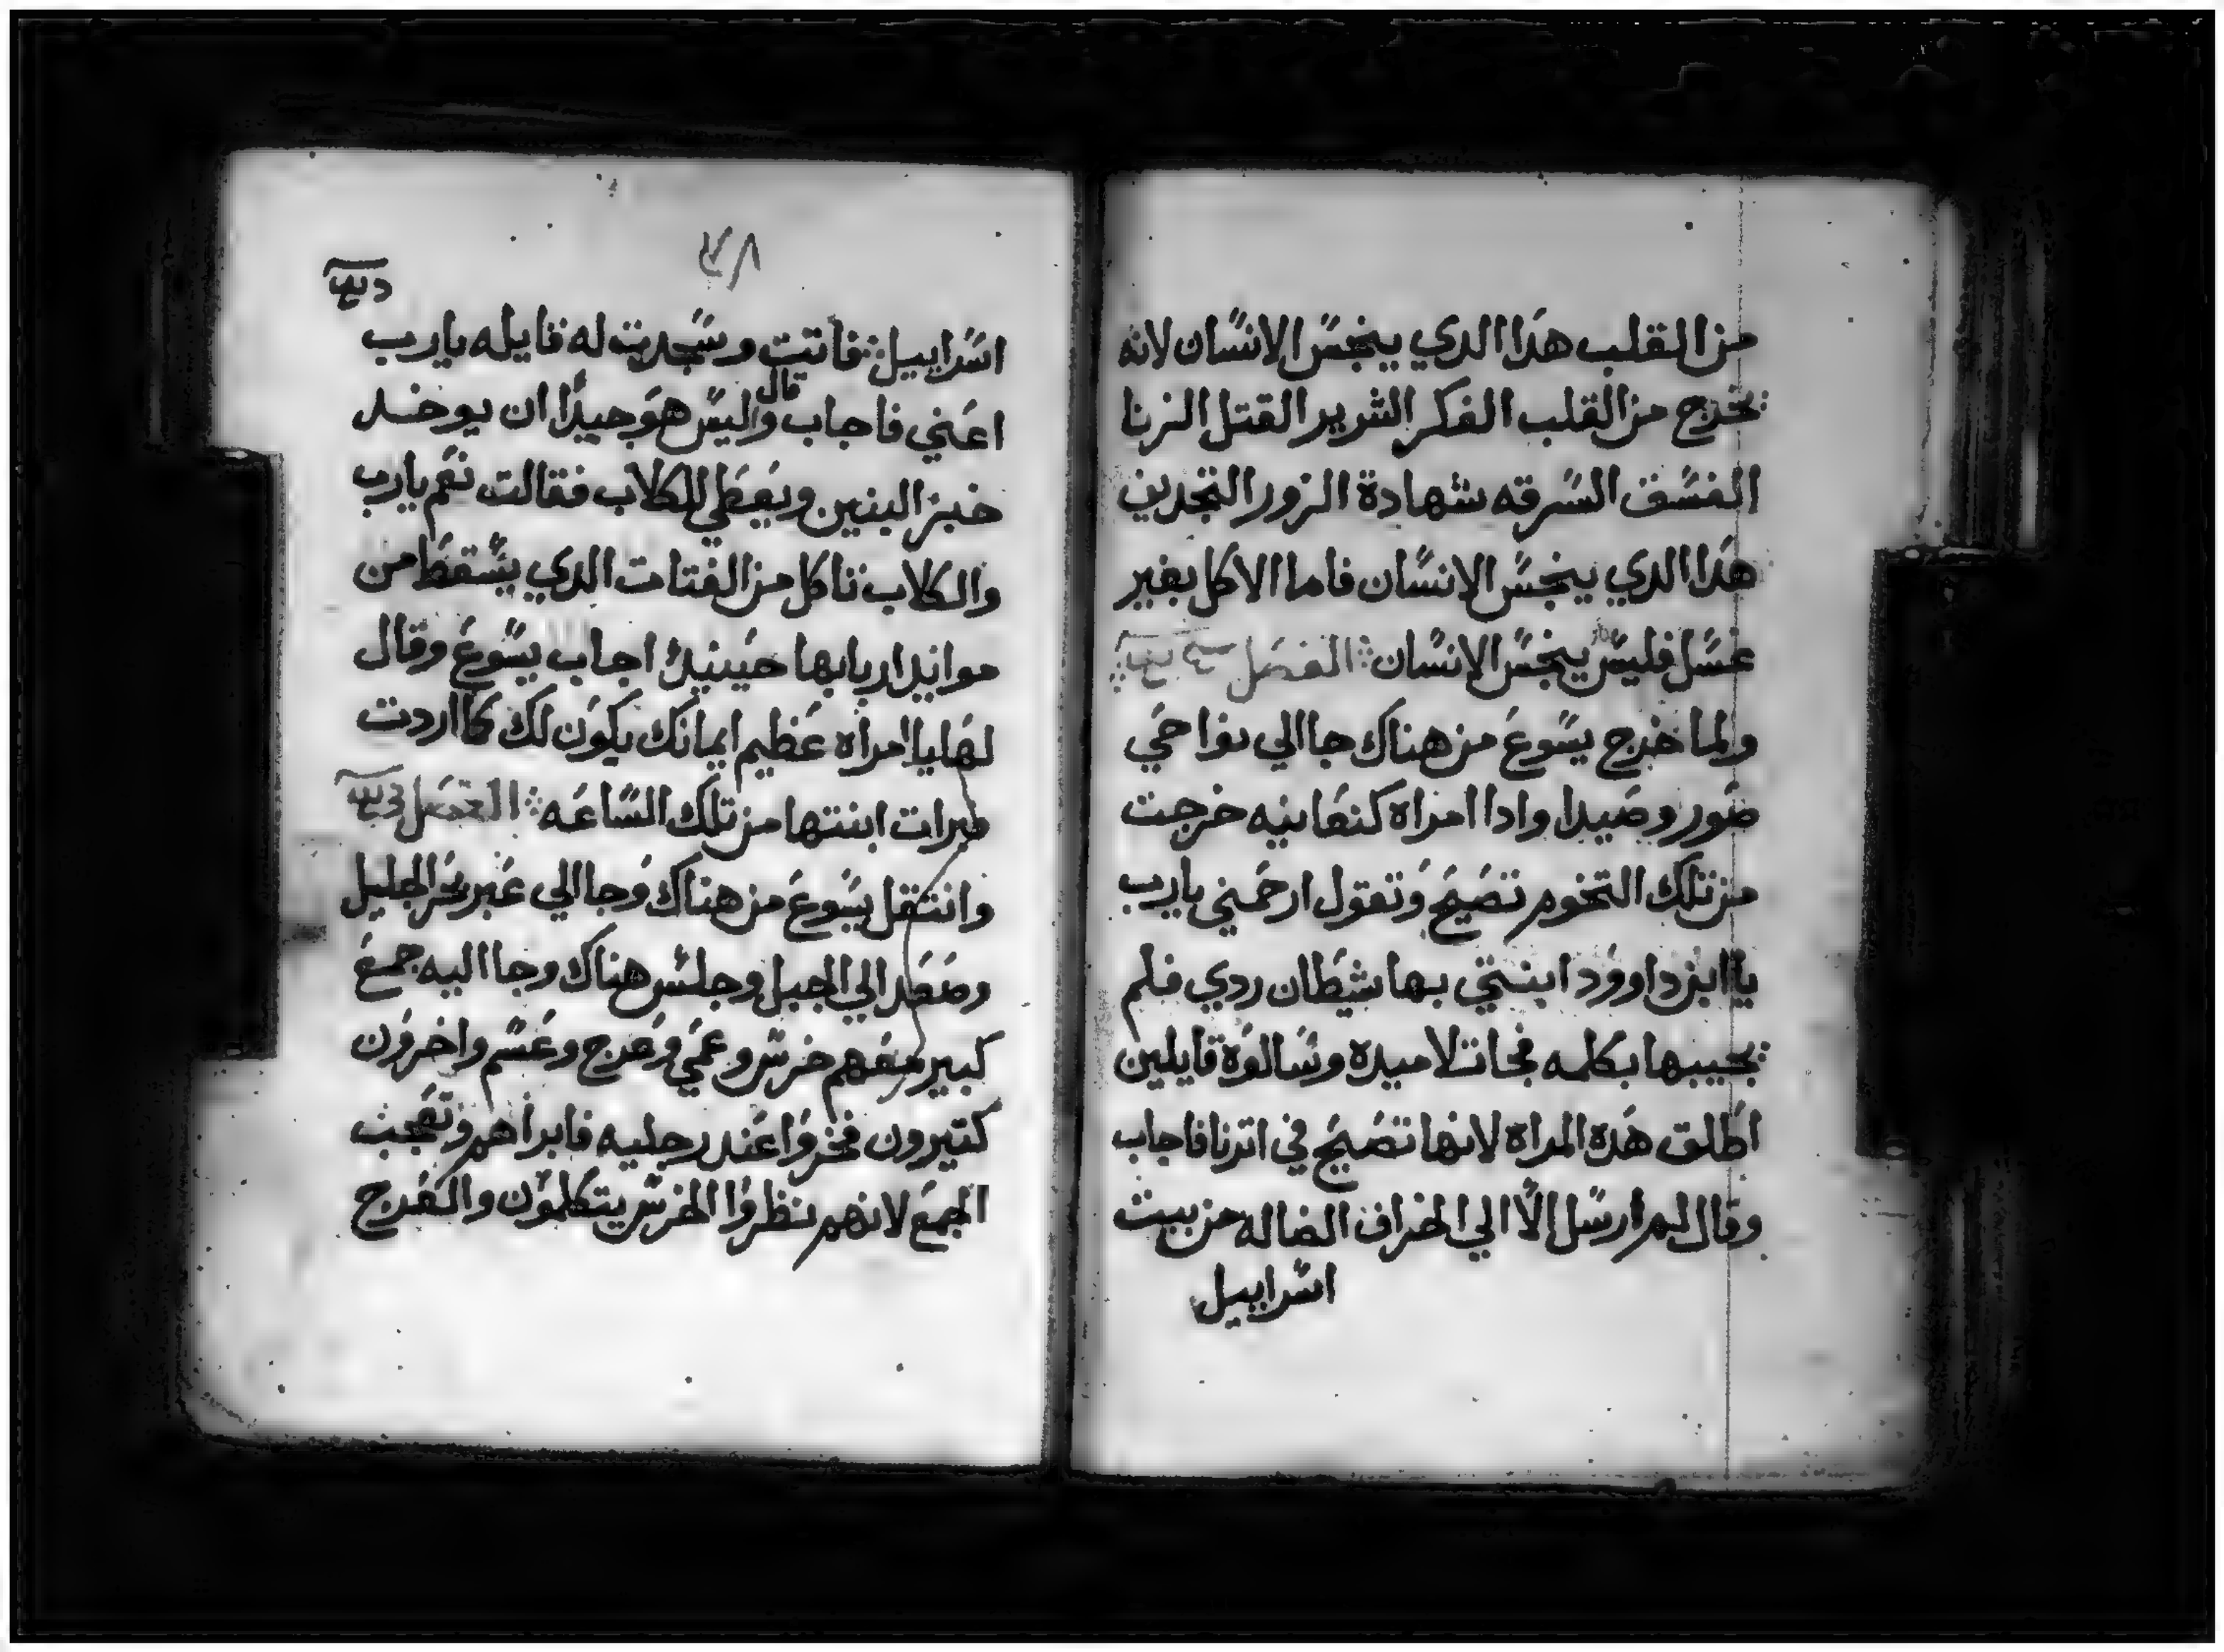 من القلب هدا الدي ينجس الانسان لانه
يخرج من القلب الفكر الشرير القتل الزنا
الفسق السرقه شهادة الزور التجديف
هدا الدي ينجس الانسان فاما الاكل بغير
غسل فليس ينجس الانسان الفصل
ولما خرج يسوع من هناك جا الي نواحي
صور وصيدا وادا امراة كنعانيه خرجت
من تلك التخوم تصيح وتقول ارحمني يارب
يا ابن داوود ابنتي بها شيطان ردي فلم
يجيبها بكلمه فجا تلاميده وسالوه قايلين
اطلق هده المراه لانها تصيح في اترنا فاجاب
وقال لم ارسل الا الي الخراف الضاله من بيت
اسراييل
اسراييل فاتت وسجدت له قايله يارب
اعني فاجاب وقال ليس هو جيدا ان يوخد
خبز البنين ويعطي للكلاب فقالت نعم يارب
والكلاب تاكل من الفتات الدي يسقط من
موايد اربابها حينيد اجاب يسوع وقال
لها يا امراه عظيم ايمانك يكون لك كما اردت
فبرات ابنتها من تلك الساعه الفصل
وانتقل يسوع من هناك وجا الي عبر بحر الجليل
وصعد الي الجبل وجلس هناك وجا اليه جمع
كبير معهم خرس وعمي وعرج وعسم واخرون
كتيرون فخروا عند رجليه فابراهم وتعجب
الجمع لانهم نظروا الخرس يتكلمون والعرج